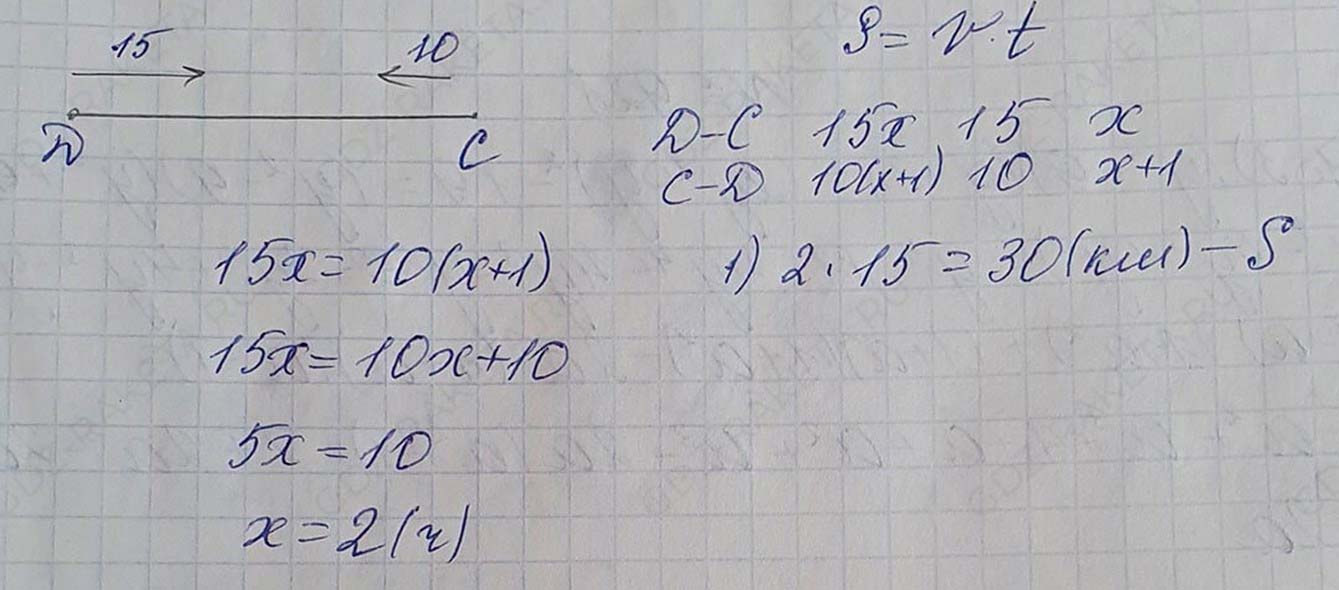 15 10
Д C
S = v · t
Д-C 15x 15 x
C-Д 10(x+1) 10 x+1
15x = 10(x+1)
15x = 10x+10
5x = 10
x = 2 (ч)
1) 2 · 15 = 30 (км) – S